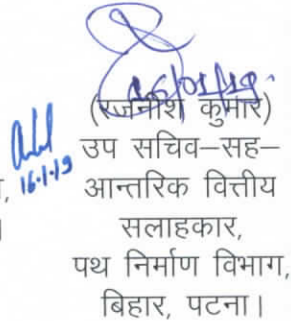 16/01/19.
(रजनीश कुमार)
16.1.19
उप सचिव–सह–
, आन्तरिक वित्तीय
। सलाहकार,
पथ निर्माण विभाग,
बिहार, पटना।